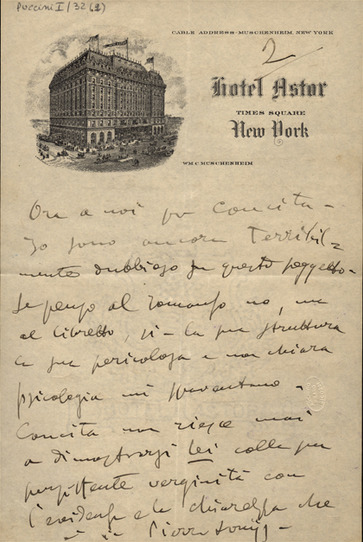 Puccini I/32 (2)
CABLE ADDRESS-MUSCHENHEIM, NEW YORK
2
Hotel Astor
TIMES SQUARE
New York
WM C. MUSCHENHEIM
Ora a noi per Concita -
Io sono ancora terribil-
mente dubbioso su questo soggetto -
Se penso al romanzo no, ma
al libretto, si - la sua struttura
la sua pericolosa e non chiara
psicologia mi spaventano -
Concita non riesce mai
a dimostrarsi lei colla sua
persistente verginità con
l'evidenza e la chiarezza che